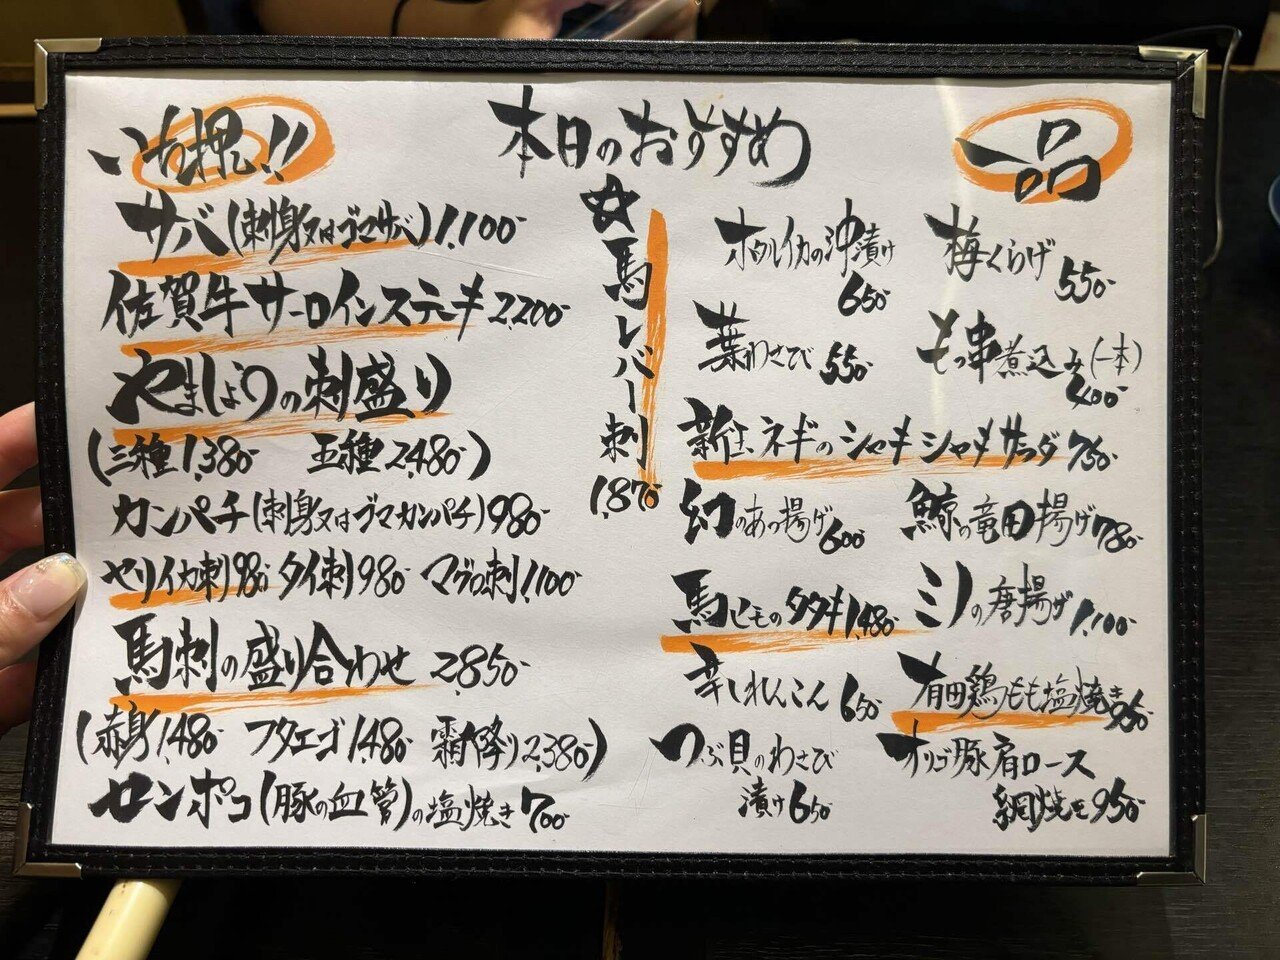 本日のおすすめ
いち押し!!
サバ(刺身又はゴマサバ)1,100-
佐賀牛サーロインステーキ2,200-
やましょうの刺盛り
(三種1,380- 五種2,480-)
カンパチ(刺身又はゴマカンパチ)980-
ヤリイカ刺980- タイ刺980- マグロ刺1,100-
馬刺の盛り合わせ 2,850-
(赤身1,480- フタエゴ1,480- 霜降り2,380-)
センポコ(豚の血管)の塩焼き700-
☆馬レバー刺
1,870-
一品
ホタルイカの沖漬け
650-
梅くらげ
550-
葉わさび 550-
もつ串煮込み(一本)
400-
新玉ネギのシャキシャキサラダ750-
幻のあつ揚げ600-
鯨の竜田揚げ780-
馬ヒモのタタキ1,480-
ミノの唐揚げ1,100-
辛しれんこん650-
有田鶏もも塩焼き950-
つぶ貝のわさび
漬け650-
オリゴ豚肩ロース
網焼き950-